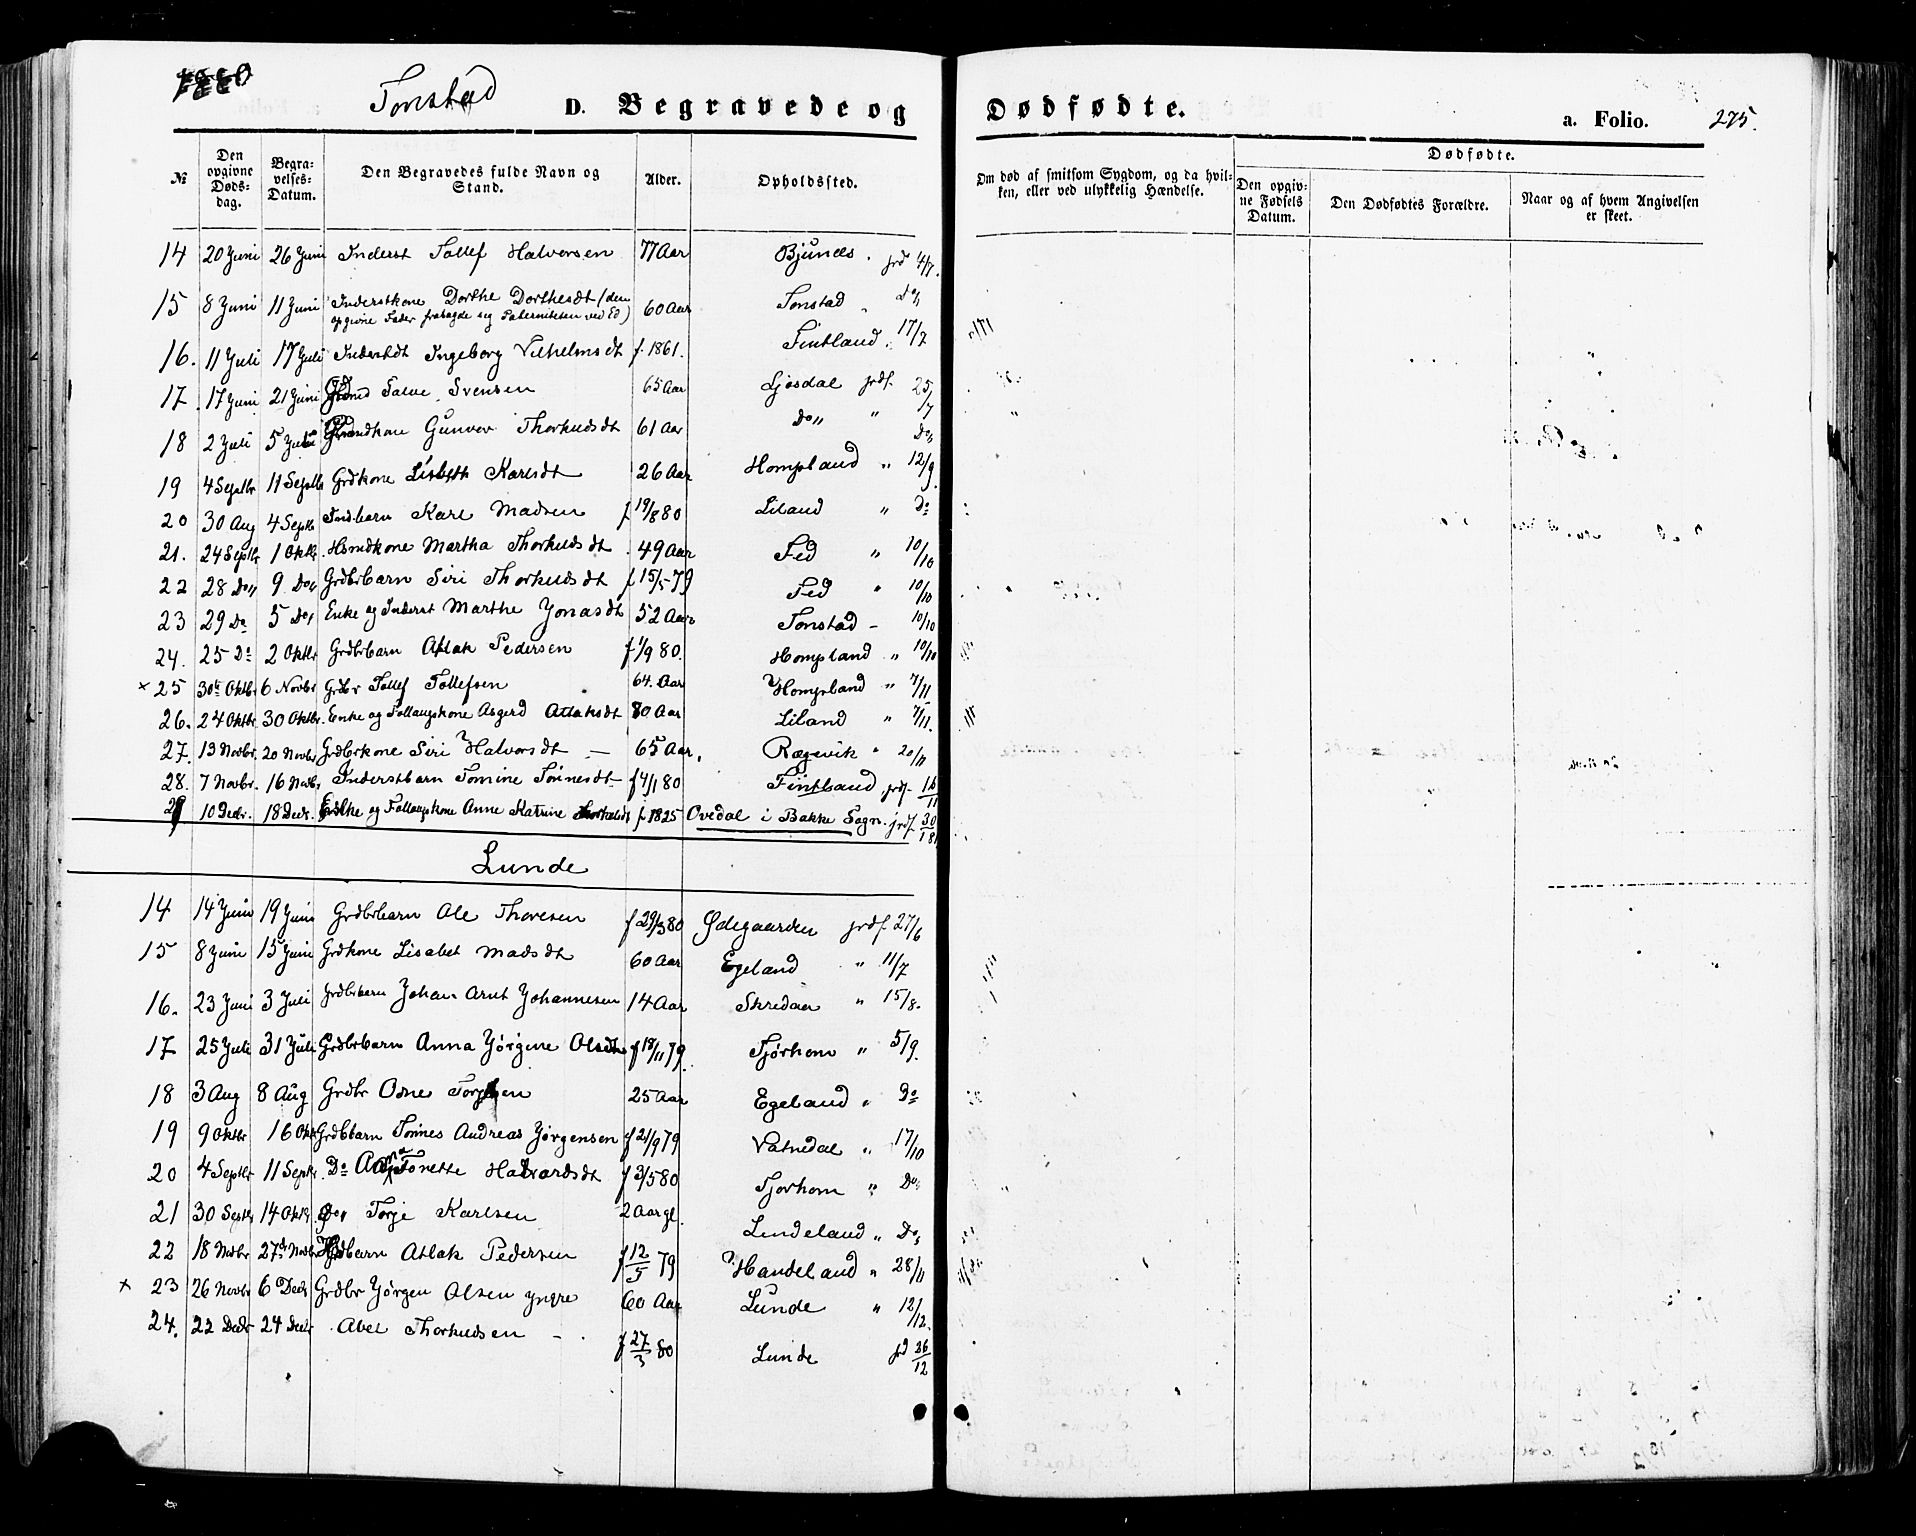 1880
Tonstad
D. Begravede og Dødfødte.
a. Folio. 275.
№ | Den opgivne Dødsdag. | Begravelses-Datum. | Den Begravedes fulde Navn og Stand. | Alder. | Opholdssted. | Om død af smitsom Sygdom, og da hvilken, eller ved ulykkelig Hændelse. | Dødfødte. | Den opgivne Fødsels Datum. | Den Dødfødtes Forældre. | Naar og af hvem Angivelsen er skeet.
14 20 Juni 26 Juni Inderst Tollef Halvorsen 77 Aar Bjunes. jrd 4/7.
15 8 Juni 11 Juni Inderstkone Dorthe Dorthesdt (den opgivne Fader fralagde sig Paterniteten ved Ed) 60 Aar Tonstad Do
16. 11 Juli 17 Juli Inderstdt Ingeborg Vilhelmsdt f. 1861. Fintland " 17/7
17. 17 Juni 21 Juni Salve Svensen 65 Aar Ljosdal jrdf. 25/7
18 2 Juli 5 Juli Gunvor Thorkildsdt 61 Aar Do " " Do
19 4 Septbr 11 Septb Grdkone Lisbeth Karlsdt 26 Aar Hompland " 12/9.
20 30 Aug 4 Septb Indbarn Karl Madsen f 19/8 80 Liland " Do
21. 24 Septbr 1 Oktbr. Hsmdkone Martha Thorkildsdt 49 Aar Fed " 10/10
22 28 Do 9 Do Grdbrbarn Siri Thorkildsdt f 15/5-79 Fed " 10/10
23 29 Do 5 Do Enke og Inderst Marthe Jonasdt 52 Aar Tonstad - 10/10
24. 25 Do 2 Oktbr Grdbrbarn Atlak Pedersen f 1/9 80. Hompland " 10/10
× 25 30te Oktbr 6 Novbr Grdbr Tollef Tollefsen 64. Aar Hompland " 7/11
26. 24 Oktbr 30 Oktbr. Enke og Follaugskone Asgerd Atlaksdt 80 Aar Liland " 7/11.
27. 13 Novbr. 20 Novbr Grdbrkone Siri Halvorsdt — 65 Aar. Rægevik " 20/11
28. 7 Novbr. 16 Novbr Inderstbarn Tomine Tønnesdt f 4/1 80 Fintland jrdf. 16/11
29 10 Decbr. 18 Decbr. Enke og Follaugskone Anne Katrine Thorkildsd f 1825 Ovedal i Bakke Sogn. jrdf 30/1 81
Lunde
14 14 Juni 19 Juni Grdbrbarn Ole Thoresen f 29/3 80 Ødegaarden jrdf. 27/6
15 8 Juni 15 Juni Grdkone Lisabet Madsdt 60 Aar Egeland " 11/7
16. 23 Juni 3 Juli Grdbrbarn Johan Arnt Johannesen 14 Aar Skredaa " 15/8.
17 25 Juli 31 Juli Grdbrbarn Anna Jørgine Olsdtr f 18/11 79. Tjørhom " 5/9.
18 3 Aug 8 Aug Grdbr Osne 25 Aar Egeland " Do
19 9 Oktbr 16 Oktb Grdbbarn Tønnes Andreas Jørgensen f 21/9 79 Vatnedal " 17/10
20 4 Septbr 11 Septbr. Do Anna Tonette Halvardsdt f 3/5 80 Tjorhom " Do
21 30 Septbr 14 Oktbr Do Torje Karlsen 2 Aar gl. Lindeland " Do
22 18 Novbr 27de Novbr barn Atlak Pedersen f 12/5 79 Handeland " 28/11
× 23 26 Novbr 6 Decb Grdbr Jørgen Olsen yngre 60 Aar Lunde " 12/12.
24. 22 Decbr 24 Decbr Abel Thorkildsen - . f 27/3 80 Lunde jd 26/12